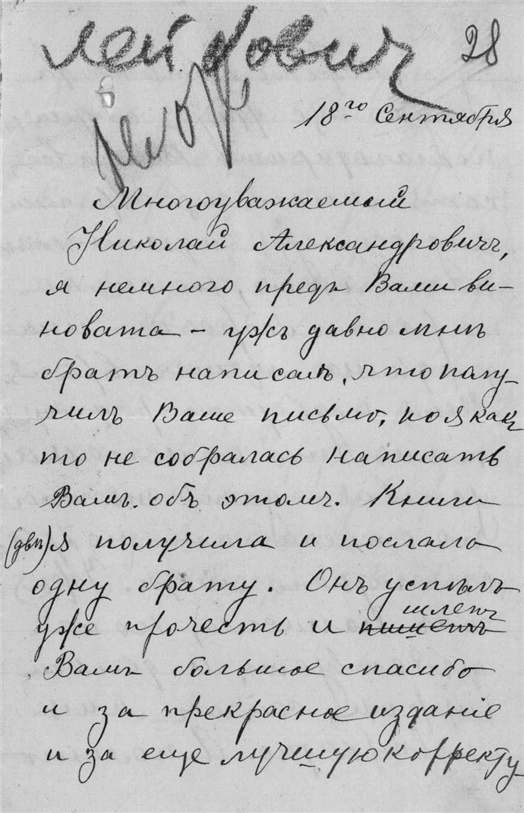 28
18го Сентября
Многоуважаемый
Николай Александровичъ,
я немного предъ Вами ви-
новата – ужъ давно мнѣ
братъ написалъ, что полу-
чилъ Ваше письмо, но я какъ
то не собралась написать
Вамъ объ этомъ. Книги
(двѣ) я получила и послала
одну брату. Онъ успѣлъ
уже прочесть и пишетъ шлетъ
Вамъ большое спасибо
и за прекрасное изданіе
и за еще лучшую корректу